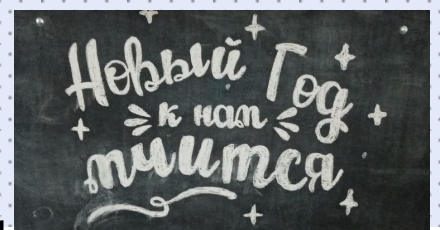 Новый Год
к нам
мчится